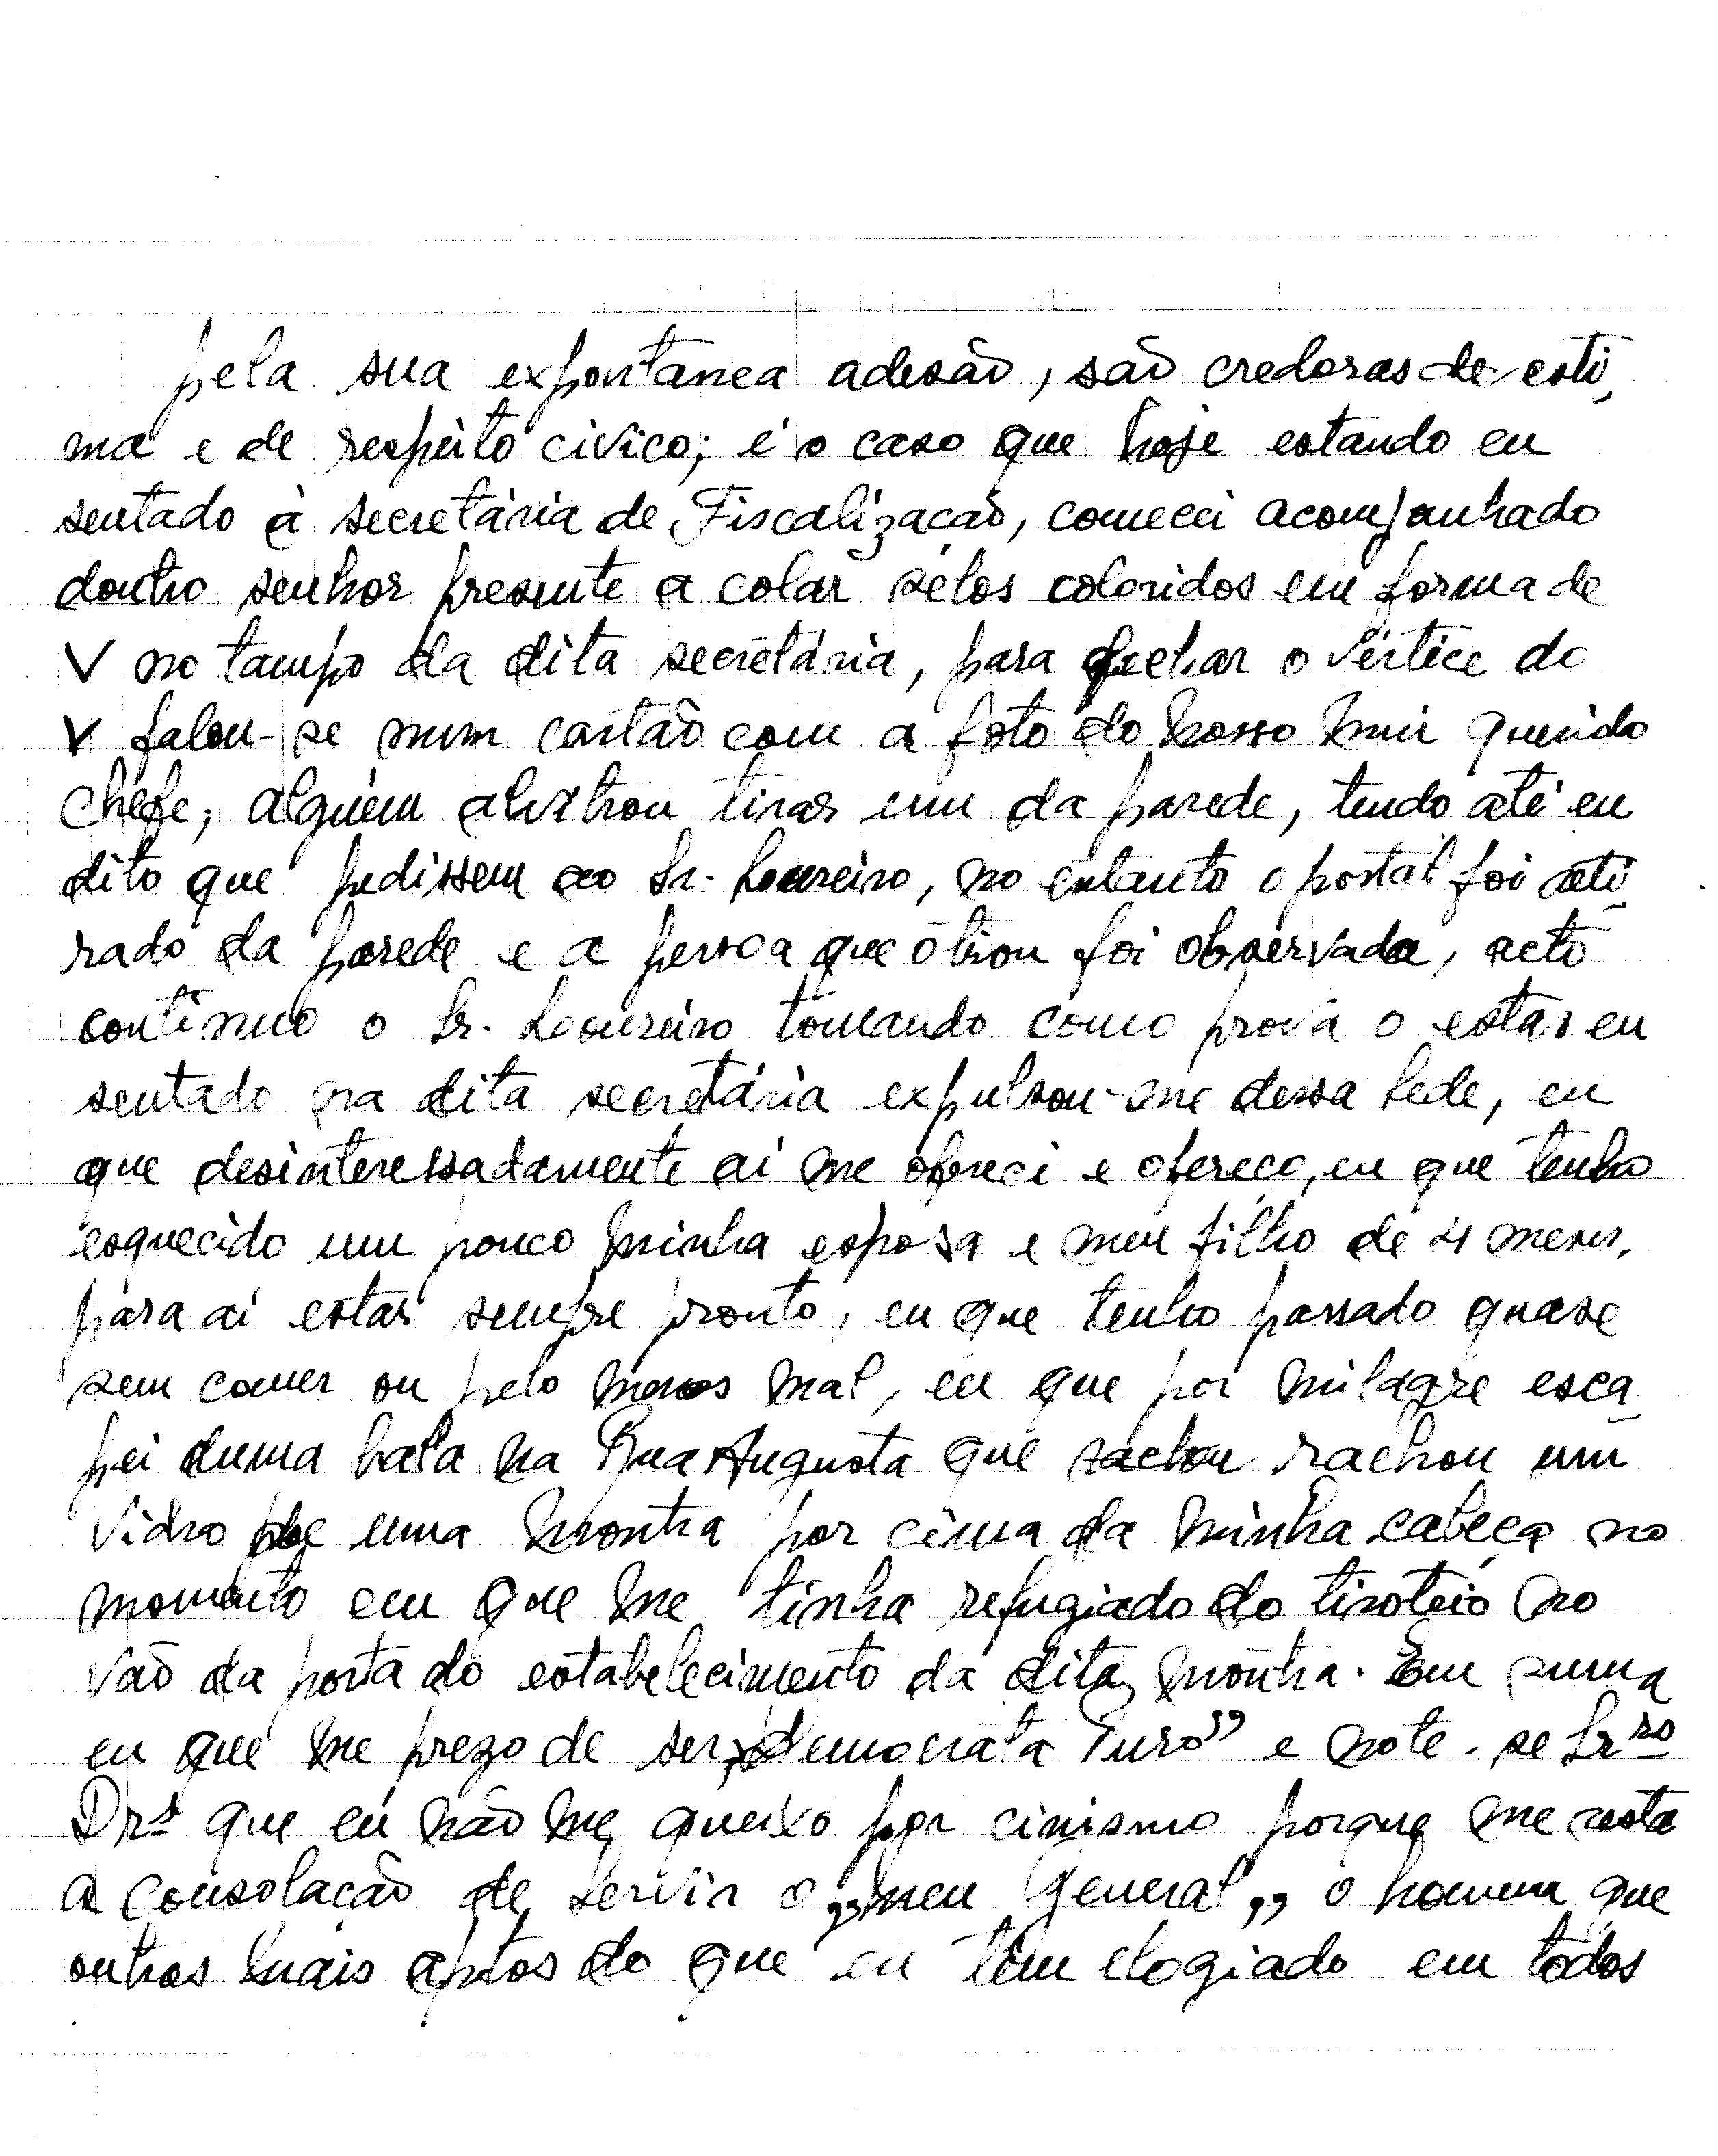 pela sua expontanea adesão, são credoras de esti-
ma e de respeito civico; é o caso que hoje estando eu
sentado à secretária de Fiscalização, comecei acompanhado
doutro senhor presente a colar sêlos coloridos em forma de
V no tampo da dita secretária, para fechar o vértice do
V falou-se num cartão com a foto do nosso mui querido
chefe, alguém alvitrou tirar um da parede, tendo até eu
dito que pedissem ao Sr. Loureiro, no entanto o postal foi reti-
rado da parede e a pessoa que o tirou foi observada, acto
continuo o Sr. Loureiro tomando como prova o estar eu
sentado na dita secretária expulsou-me dessa Sede, eu
que desinteressadamente aí me ofereci e ofereço, eu que tenho
esquecido um pouco minha esposa e meu filho de 4 meses,
para aí estar sempre pronto, eu que tenho passado quase
sem comer ou pelo menos mal, eu que por milagre esca-
pei duma bala na Rua Augusta que rachou rachou um
vidro de uma montra por cima da minha cabeça no
momento em que me tinha refugiado do tiroteio no
vão da porta do estabelecimento da dita montra. Em suma
eu que me prezo de ser „democrata Puro” e note-se Srrs
Drs que eu não me queixo por cinismo porque me resta
a consolação de servir o „meu General„ o homem que
outros mais aptos do que eu têm elogiado em todos